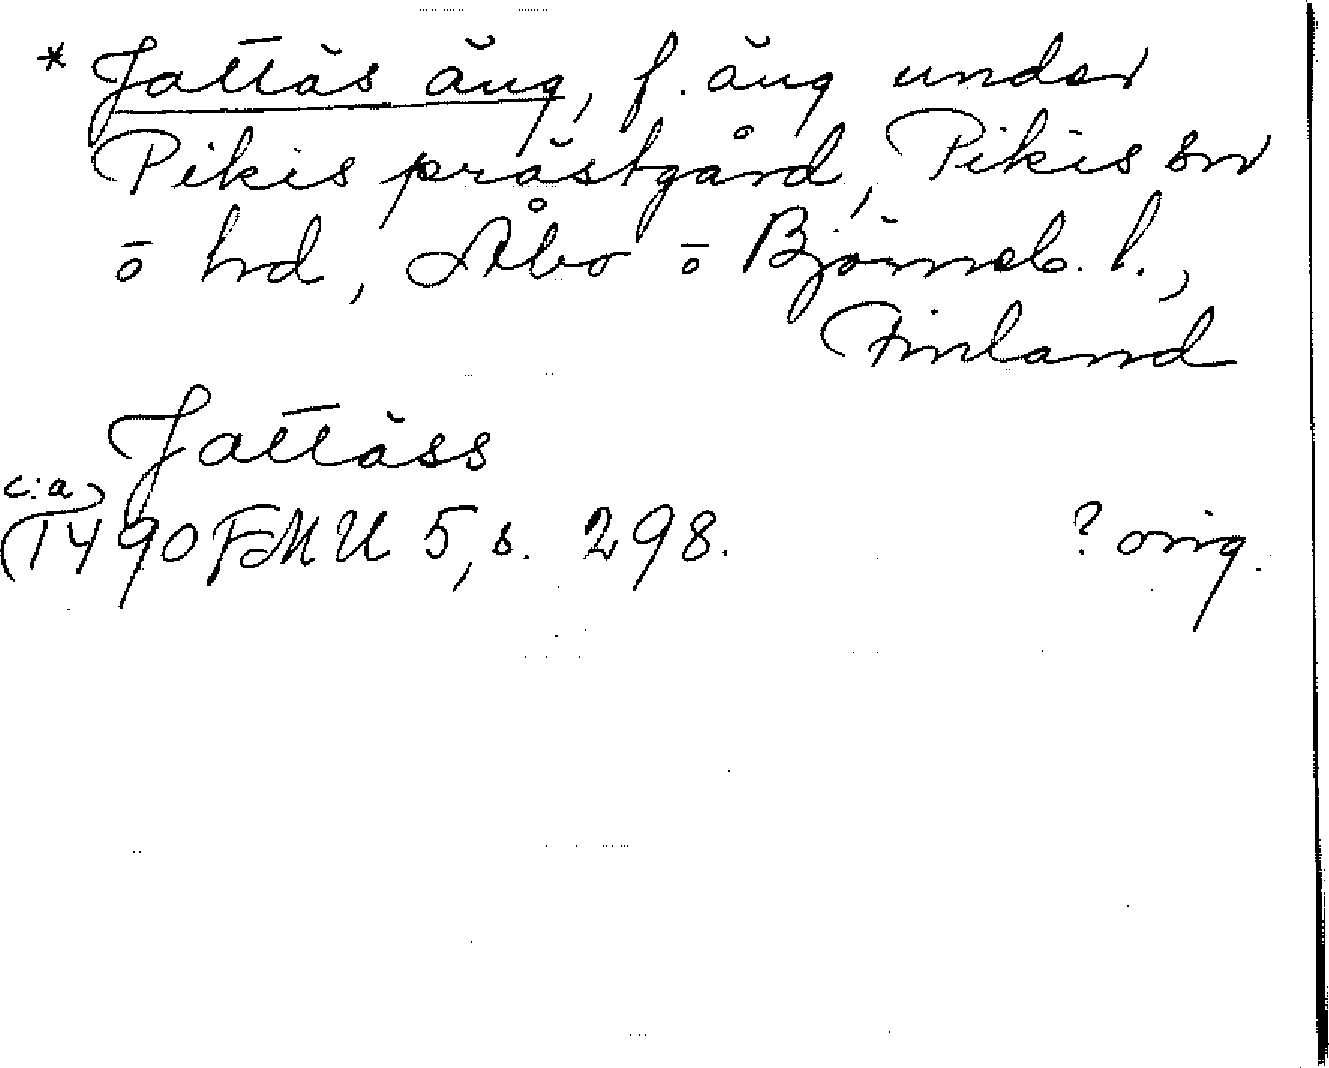 * Jattäs äng, f. äng under
Pikis prästgård, Pikis sn
o hd, Åbo o Björneb. l.,
Finland
Jattäss
c:a
(1490 FMU 5, s. 298. ? orig.